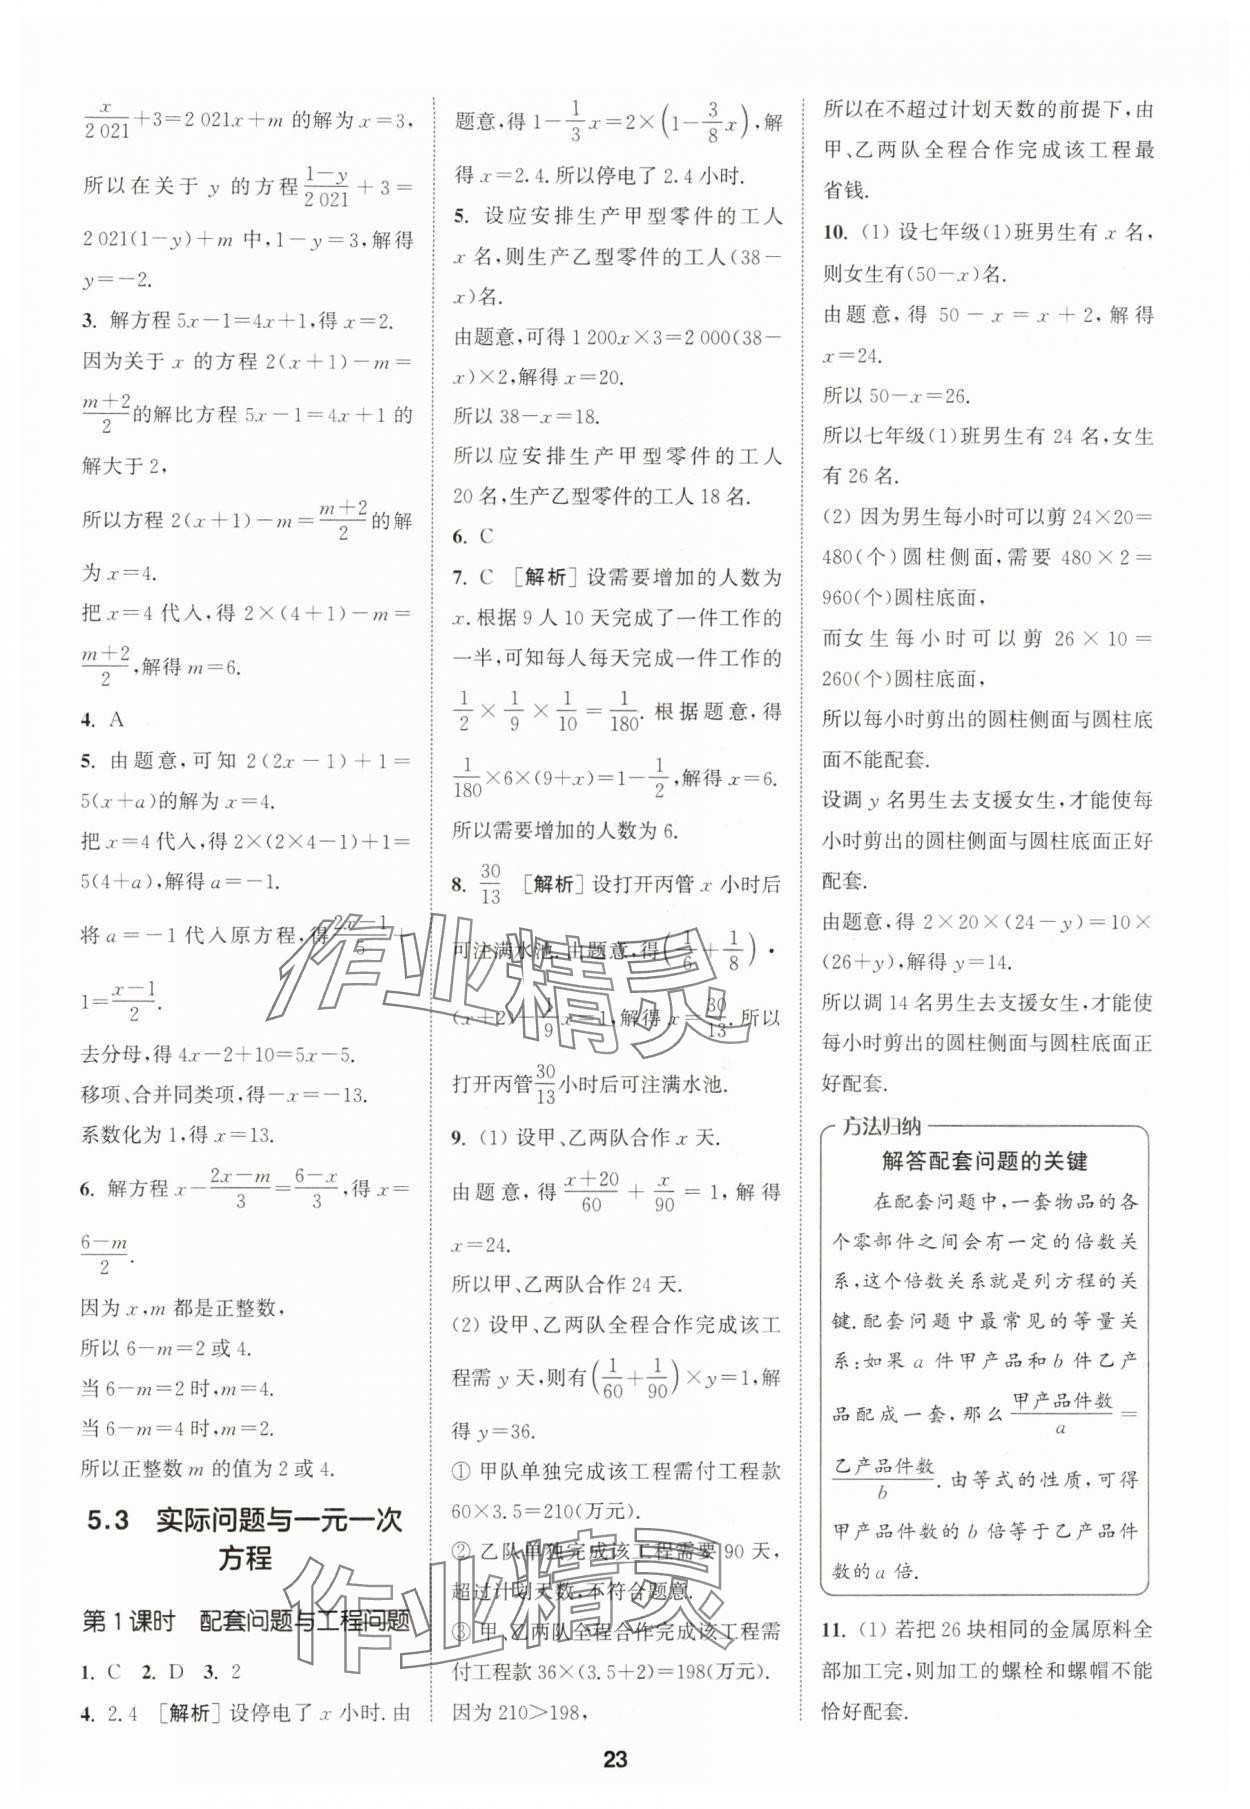 x/2 021+3=2 021x+m 的解为 x=3,
所以在关于 y 的方程 (1-y)/2 021+3=
2 021(1-y)+m 中,1-y=3,解得
y=-2.
3. 解方程 5x-1=4x+1,得 x=2.
因为关于 x 的方程 2(x+1)-m=
(m+2)/2 的解比方程 5x-1=4x+1 的
解大于 2,
所以方程 2(x+1)-m=(m+2)/2 的解
为 x=4.
把 x=4 代入,得 2×(4+1)-m=
(m+2)/2,解得 m=6.
4. A
5. 由题意,可知 2(2x-1)+1=
5(x+a)的解为 x=4.
把 x=4代入,得 2×(2×4-1)+1=
5(4+a),解得 a=-1.
将 a=-1 代入原方程,得 (2x-1)/5+
1=(x-1)/2.
去分母,得 4x-2+10=5x-5.
移项、合并同类项,得-x=-13.
系数化为 1,得 x=13.
6. 解方程 x-(2x-m)/3=(6-x)/3,得 x=
(6-m)/2.
因为 x,m 都是正整数,
所以 6-m=2或 4.
当 6-m=2 时,m=4.
当 6-m=4 时,m=2.
所以正整数 m 的值为 2 或 4.
5.3 实际问题与一元一次
方程
第 1 课时 配套问题与工程问题
1. C 2. D 3. 2
4. 2.4 [解析]设停电了 x 小时.由
题意,得 1-1/3x=2×(1-3/8x),解
得 x=2.4.所以停电了 2.4 小时.
5. 设应安排生产甲型零件的工人
x 名,则生产乙型零件的工人(38-
x)名.
由题意,可得 1 200x×3=2 000(38-
x)×2,解得 x=20.
所以 38-x=18.
所以应安排生产甲型零件的工人
20 名,生产乙型零件的工人 18 名.
6. C
7. C [解析]设需要增加的人数为
x.根据 9 人 10 天完成了一件工作的
一半,可知每人每天完成一件工作的
1/2×1/9×1/10=1/180.根据题意,得
1/180×6×(9+x)=1-1/2,解得 x=6.
所以需要增加的人数为 6.
8. 30/13 [解析]设打开丙管 x 小时后
可注满水池.由题意,得(1/6+1/8)·
(x+2)-1/9x=1,解得 x=30/13.所以
打开丙管30/13小时后可注满水池.
9. (1) 设甲、乙两队合作 x 天.
由题意,得 (x+20)/60+x/90=1,解得
x=24.
所以甲、乙两队合作 24 天.
(2) 设甲、乙两队全程合作完成该工
程需 y 天,则有(1/60+1/90)×y=1,解
得 y=36.
① 甲队单独完成该工程需付工程款
60×3.5=210(万元).
② 乙队单独完成该工程需要 90 天,
超过计划天数,不符合题意.
③ 甲、乙两队全程合作完成该工程需
付工程款 36×(3.5+2)=198(万元).
因为 210>198,
所以在不超过计划天数的前提下,由
甲、乙两队全程合作完成该工程最
省钱.
10. (1) 设七年级(1)班男生有 x 名,
则女生有(50-x)名.
由题意,得 50-x=x+2,解得
x=24.
所以 50-x=26.
所以七年级(1)班男生有 24 名,女生
有 26 名.
(2) 因为男生每小时可以剪 24×20=
480(个)圆柱侧面,需要 480×2=
960(个)圆柱底面,
而女生每小时可以剪 26×10=
260(个)圆柱底面,
所以每小时剪出的圆柱侧面与圆柱底
面不能配套.
设调 y 名男生去支援女生,才能使每
小时剪出的圆柱侧面与圆柱底面正好
配套.
由题意,得 2×20×(24-y)=10×
(26+y),解得 y=14.
所以调 14 名男生去支援女生,才能使
每小时剪出的圆柱侧面与圆柱底面正
好配套.
方法归纳
解答配套问题的关键
在配套问题中,一套物品的各
个零部件之间会有一定的倍数关
系,这个倍数关系就是列方程的关
键.配套问题中最常见的等量关
系:如果 a 件甲产品和 b 件乙产
品配成一套,那么 甲产品件数/a=
乙产品件数/b.由等式的性质,可得
甲产品件数的 b 倍等于乙产品件
数的 a 倍.
11. (1) 若把 26 块相同的金属原料全
部加工完,则加工的螺栓和螺帽不能
恰好配套.
23
作业精灵
作业精灵